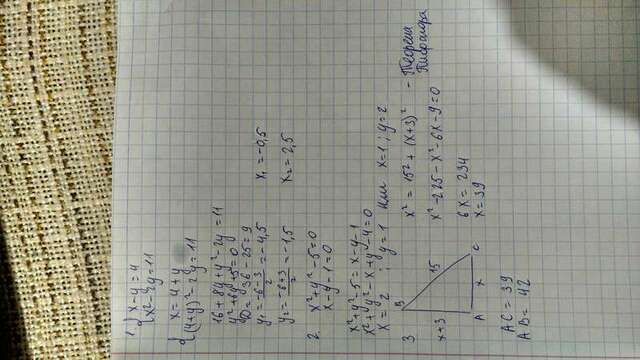 1. { x-y=4
x²-2y=11
{ x=4+y
(4+y)²-2y=11
16+8y+y²-2y=11
y²+6y+5=0
D=36-25=9
y₁=(-6-3)/2=-4,5
y₂=(-6+3)/2=-1,5
x₁=-0,5
x₂=2,5
2. x²+y²-5=0
x-y-1=0
x²+y²-5=x-y-1
x²+y²-x+y-4=0
x=2; y=1 или x=1; y=2
3
B
x+3
15
A
x
C
x²=15²+(x+3)² - Теорема Пифагора
x²-225-x²-6x-9=0
6x=234
x=39
AC=39
AB=42